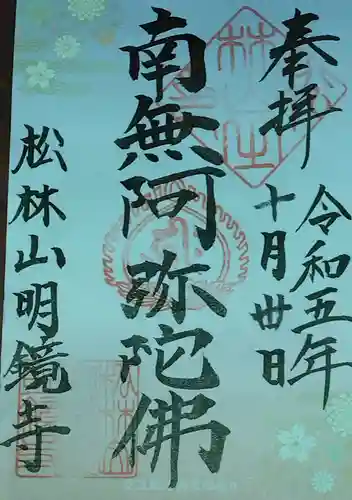 奉拝
令和五年
十月卅日
南無阿弥陀佛
松林山明鏡寺